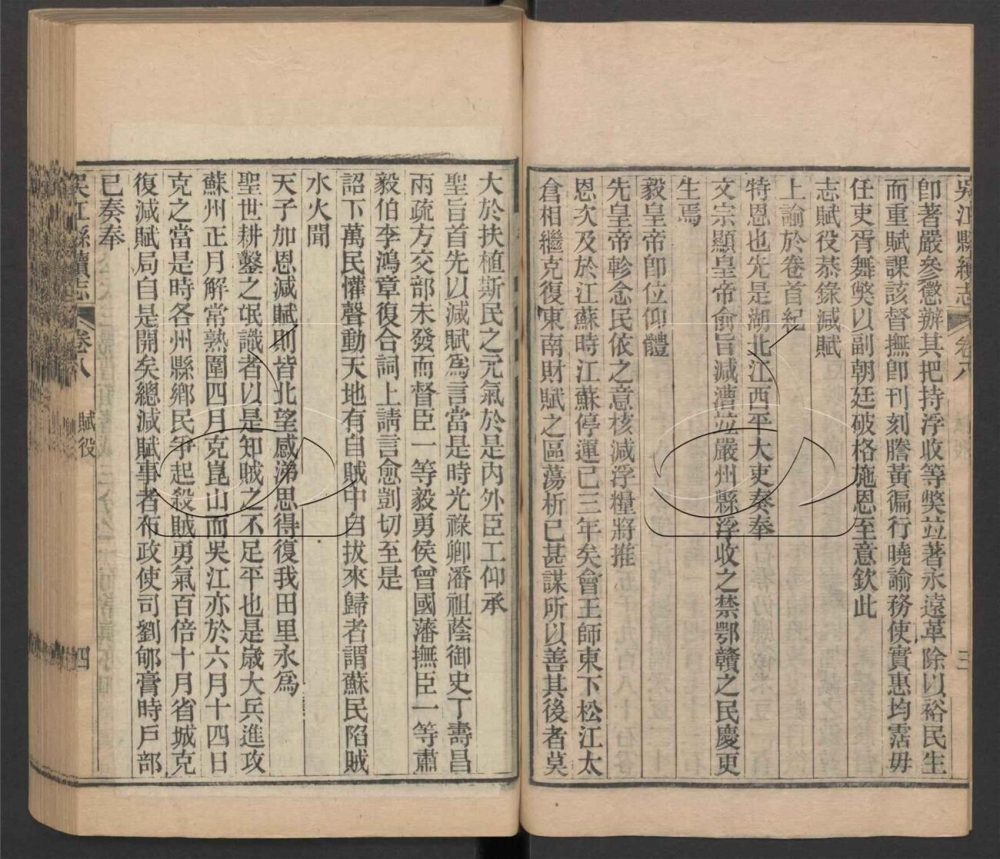 吳江縣續志 卷八 三
卽著嚴參懲辦其把持浮收等獘竝著永遠革除以裕民生
而重賦課該督撫卽刊刻謄黃徧行曉諭務使實惠均霑毋
任吏胥舞獘以副朝廷破格施恩至意欽此
志賦役恭錄減賦
上諭於卷首紀
特恩也先是湖北江西平大吏奏奉
文宗顯皇帝俞旨減漕竝嚴州縣浮收之禁鄂贛之民慶更
生焉
毅皇帝卽位仰體
先皇帝軫念民依之意核減浮糧將推
恩次及於江蘇時江蘇停運已三年矣會王師東下松江太
倉相繼克復東南財賦之區蕩析已甚謀所以善其後者莫
大於扶植斯民之元氣於是內外臣工仰承
聖旨首先以減賦爲言當是時光祿卿潘祖蔭御史丁壽昌
兩疏方交部未發而督臣一等毅勇侯曾國藩撫臣一等肅
毅伯李鴻章復合詞上請言愈剴切至是
詔下萬民懽聲動天地有自賊中自拔來歸者謂蘇民陷賊
水火聞
天子加恩減賦則皆北望感涕思得復我田里永爲
聖世耕鑿之氓識者以是知賊之不足平也是歲大兵進攻
蘇州正月解常熟圍四月克崑山而吳江亦於六月十四日
克之當是時各州縣鄉民爭起殺賊勇氣百倍十月省城克
復減賦局自是開矣總減賦事者布政使司劉郇膏時戶部
已奏奉
吳江縣續志 卷八 賦役 四